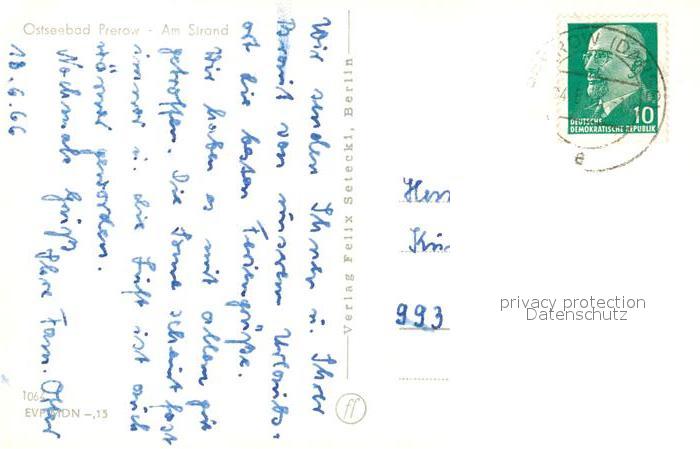 Ostseebad Prerow - Am Strand
Wir senden Ihnen u. Ihrer
von unserem Urlaubs-
ort die besten Feriengrüße.
Wir haben es mit allem gut
getroffen. Die Sonne scheint fast
immer u. die Luft ist auch
wärmer geworden.
Nochmals Grüße Ihre Fam.
18.6.66
Verlag Felix Setteckl, Berlin
EVP MDN -,15
ff
DEUTSCHE
DEMOKRATISCHE REPUBLIK
10
e
993
privacy protection
Datenschutz